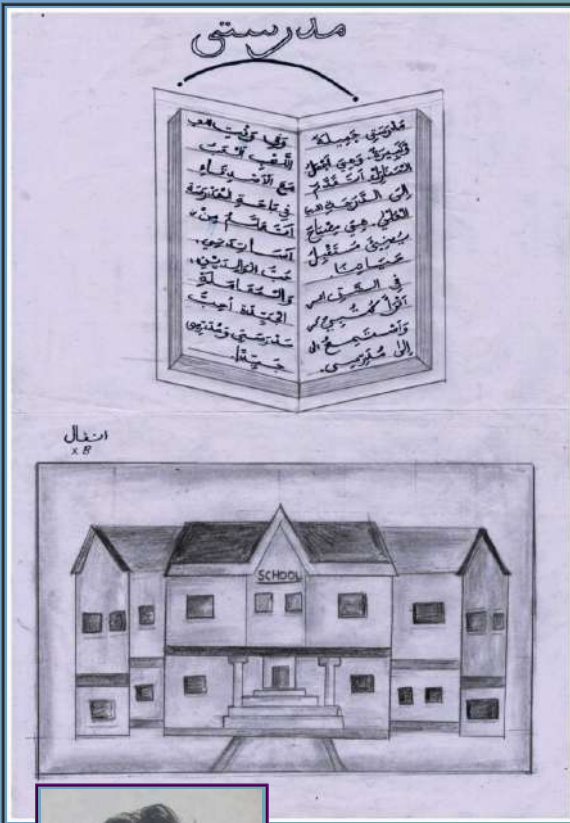 مدرستي
مَدْرَسَتِي جَمِيلَة
وَكَبِيرَة. وَهِيَ أَجْمَلُ
أتَقَدَّم
إلى الدَّرَجَاتِ
العُلَى. هِيَ مِفْتَاح
يُضِيئُ مُسْتَقْبِلَ
حَيَاتِنَا.
في الصَّفِّ
أَقْرَأُ كُتُبِي
وَأَسْتَمِعُ
إلى مُدَرِّسِي.
وَفِي وَقْتِ اللعب
أَلْعَبُ
مَعَ الأَصْدِقَاء
فِي سَاحَةِ المَدْرَسَة
أَتَعَلَّمُ مِنْ
أَسَاتِذَتِي.
حُبَّ الوَالِدَيْنِ.
وَالمُعَامَلَة
الجَيِّدَة أُحِبُّ
مَدْرَسَتِي وَمُدَرِّسِي
جَيِّداً.
انفال
x B
SCHOOL